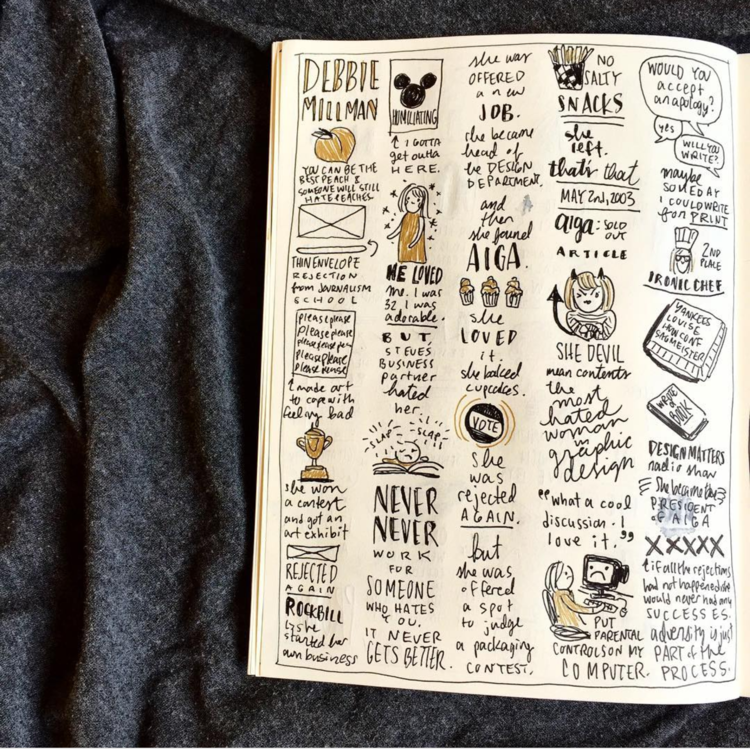 DEBBIE
MILLMAN
YOU CAN BE THE
BEST PEACH &
SOMEONE WILL STILL
HATE PEACHES.
THIN ENVELOPE
REJECTION
from JOURNALISM
SCHOOL
please please
please please
please please
please please
please please
I made art
to cope with
feeling bad
she won
a contest
and got an
art exhibit
REJECTED
AGAIN
ROCKBILL
she
started her
own business
HUMILIATING
I GOTTA
get outta
HERE.
HE LOVED
me. I was
32. I was
adorable.
BUT
STEVES
BUSINESS
partner
hated
her.
SLAP SLAP
NEVER
NEVER
WORK
FOR
SOMEONE
WHO HATES
YOU.
IT NEVER
GETS BETTER.
she was
OFFERED
a new
JOB.
she became
head of
the DESIGN
DEPARTMENT.
and
then
she found
AIGA.
she
LOVED
it.
she baked
cupcakes.
VOTE
she
was
rejected
AGAIN.
but
she was
offered
a spot
to judge
a packaging
CONTEST.
NO
SALTY
SNACKS
she
left.
that's that
MAY 2nd, 2003
aiga: SOLD
OUT
ARTICLE
SHE DEVIL
mean contents
the
most
hated
woman
in
graphic
design
"what a cool
discussion. I
love it."
PUT
PARENTAL
CONTROLS ON MY
COMPUTER.
WOULD YOU
accept
an apology?
yes
WILL YOU
WRITE?
maybe
someday
I could write
for PRINT
2ND
PLACE
IRONIC CHEF
YANKEES
LOUISE
HOW CONF
SAGMEISTER
WROTE
a
BOOK
DESIGN MATTERS
radio show
She became the
PRESIDENT
of AIGA
XXXXX
if all the rejections
had not happened she
would never had any
SUCCESSES.
adversity is just
PART of the
PROCESS.